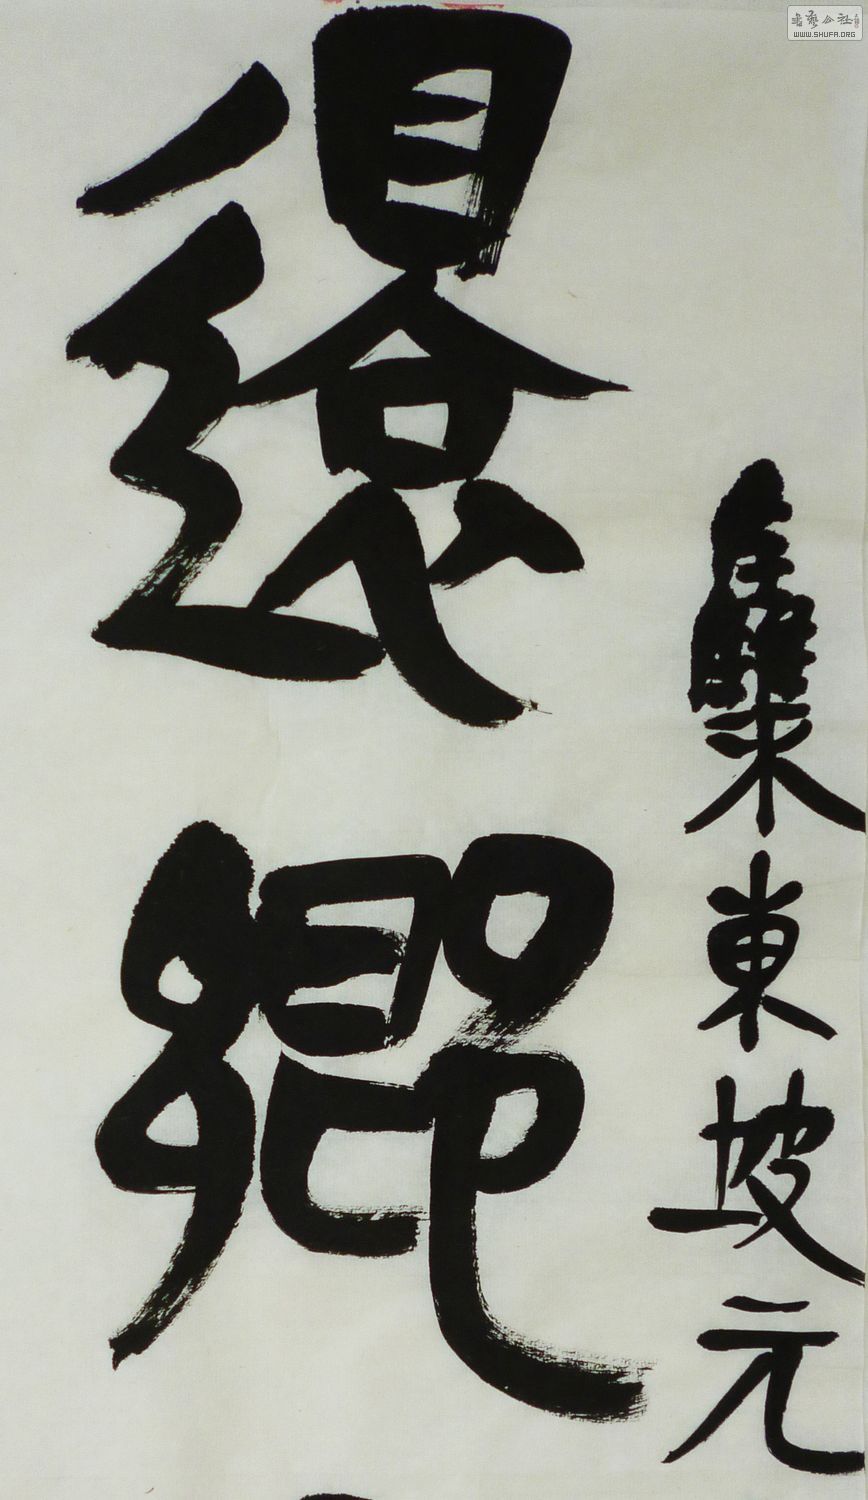 集東坡元
還鄉
書藝公社
WWW.SHUFA.ORG